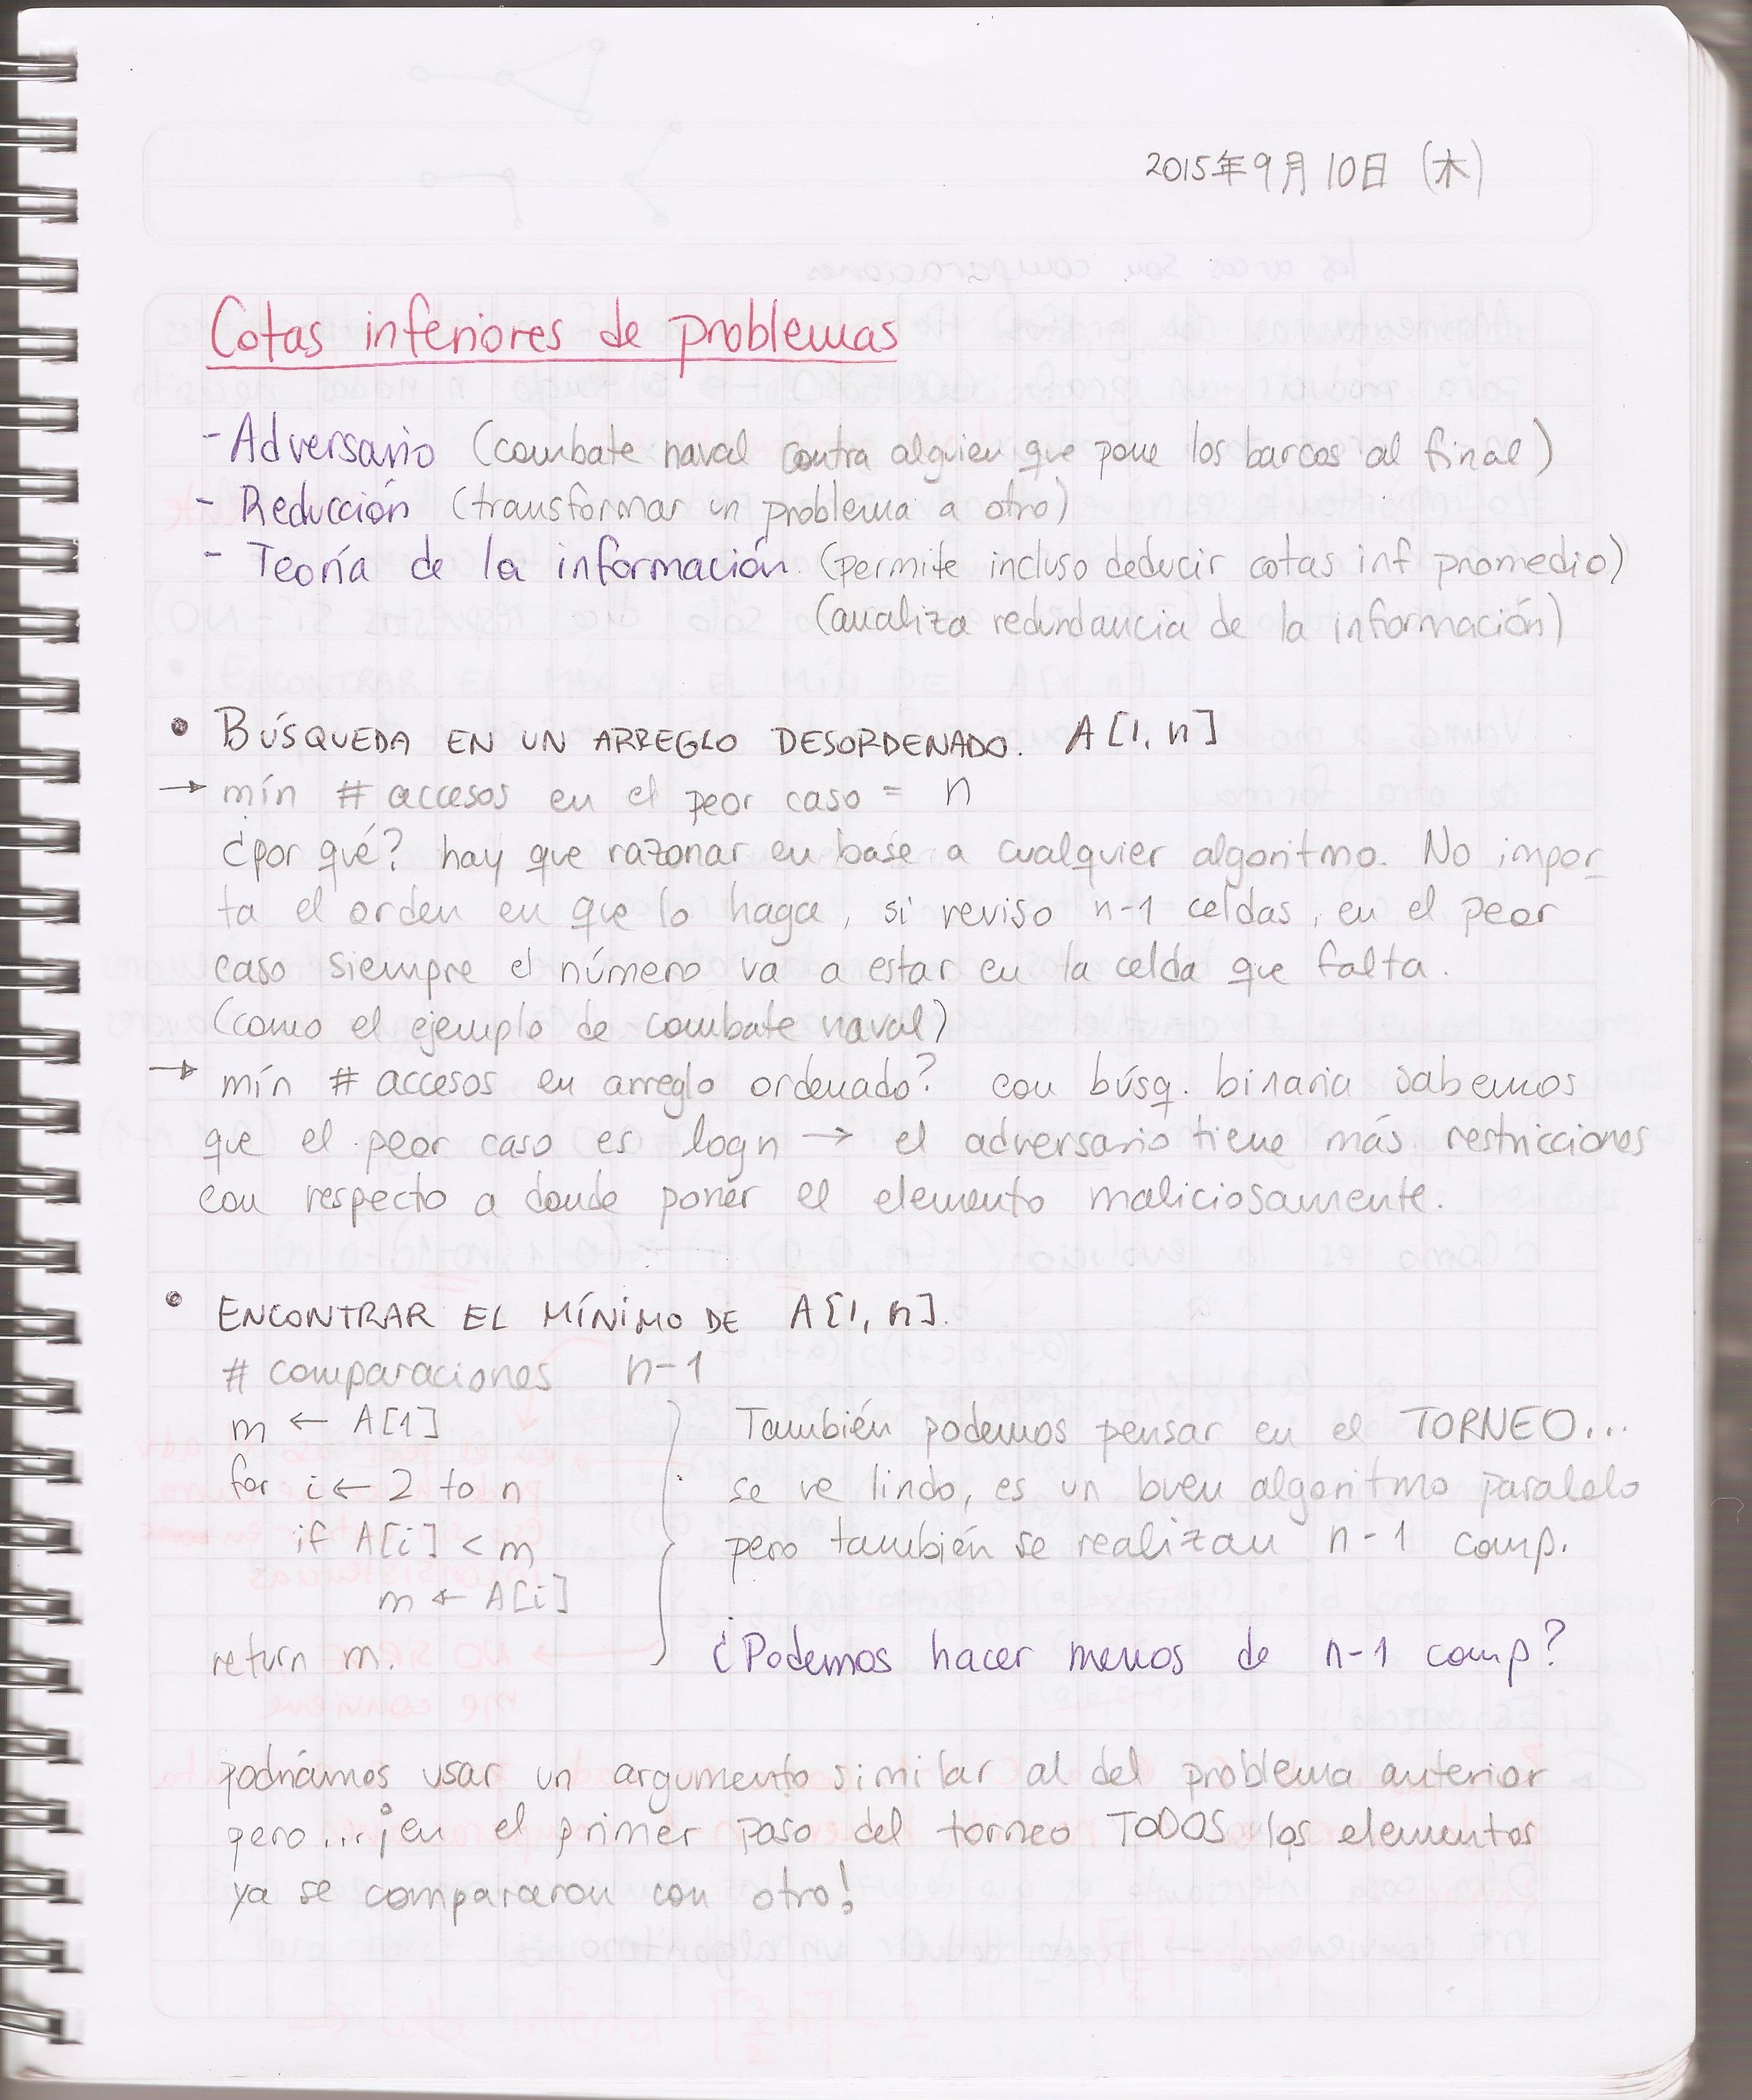 2015年9月10日 (木)
Cotas inferiores de problemas
- Adversario (combate naval contra alguien que pone los barcos al final)
- Reducción (transformar un problema a otro)
- Teoría de la información (permite incluso deducir cotas inf promedio)
(analiza redundancia de la información)
• BÚSQUEDA EN UN ARREGLO DESORDENADO. A[1,n]
→ mín # accesos en el peor caso = n
¿por qué? hay que razonar en base a cualquier algoritmo. No impor
ta el orden en que lo haga, si reviso n-1 celdas, en el peor
caso siempre el número va a estar en la celda que falta.
(como el ejemplo de combate naval)
→ mín # accesos en arreglo ordenado? con búsq. binaria sabemos
que el peor caso es logn → el adversario tiene más restricciones
con respecto a donde poner el elemento maliciosamente.
• ENCONTRAR EL MÍNIMO DE A[1,n].
# comparaciones n-1
m ← A[1]
for i ← 2 to n
if A[i] < m
m ← A[i]
return m.
También podemos pensar en el TORNEO...
se ve lindo, es un buen algoritmo paralelo
pero también se realizan n-1 comp.
¿Podemos hacer menos de n-1 comp?
podríamos usar un argumento similar al del problema anterior
pero... ¡en el primer paso del torneo TODOS los elementos
ya se compararon con otro!